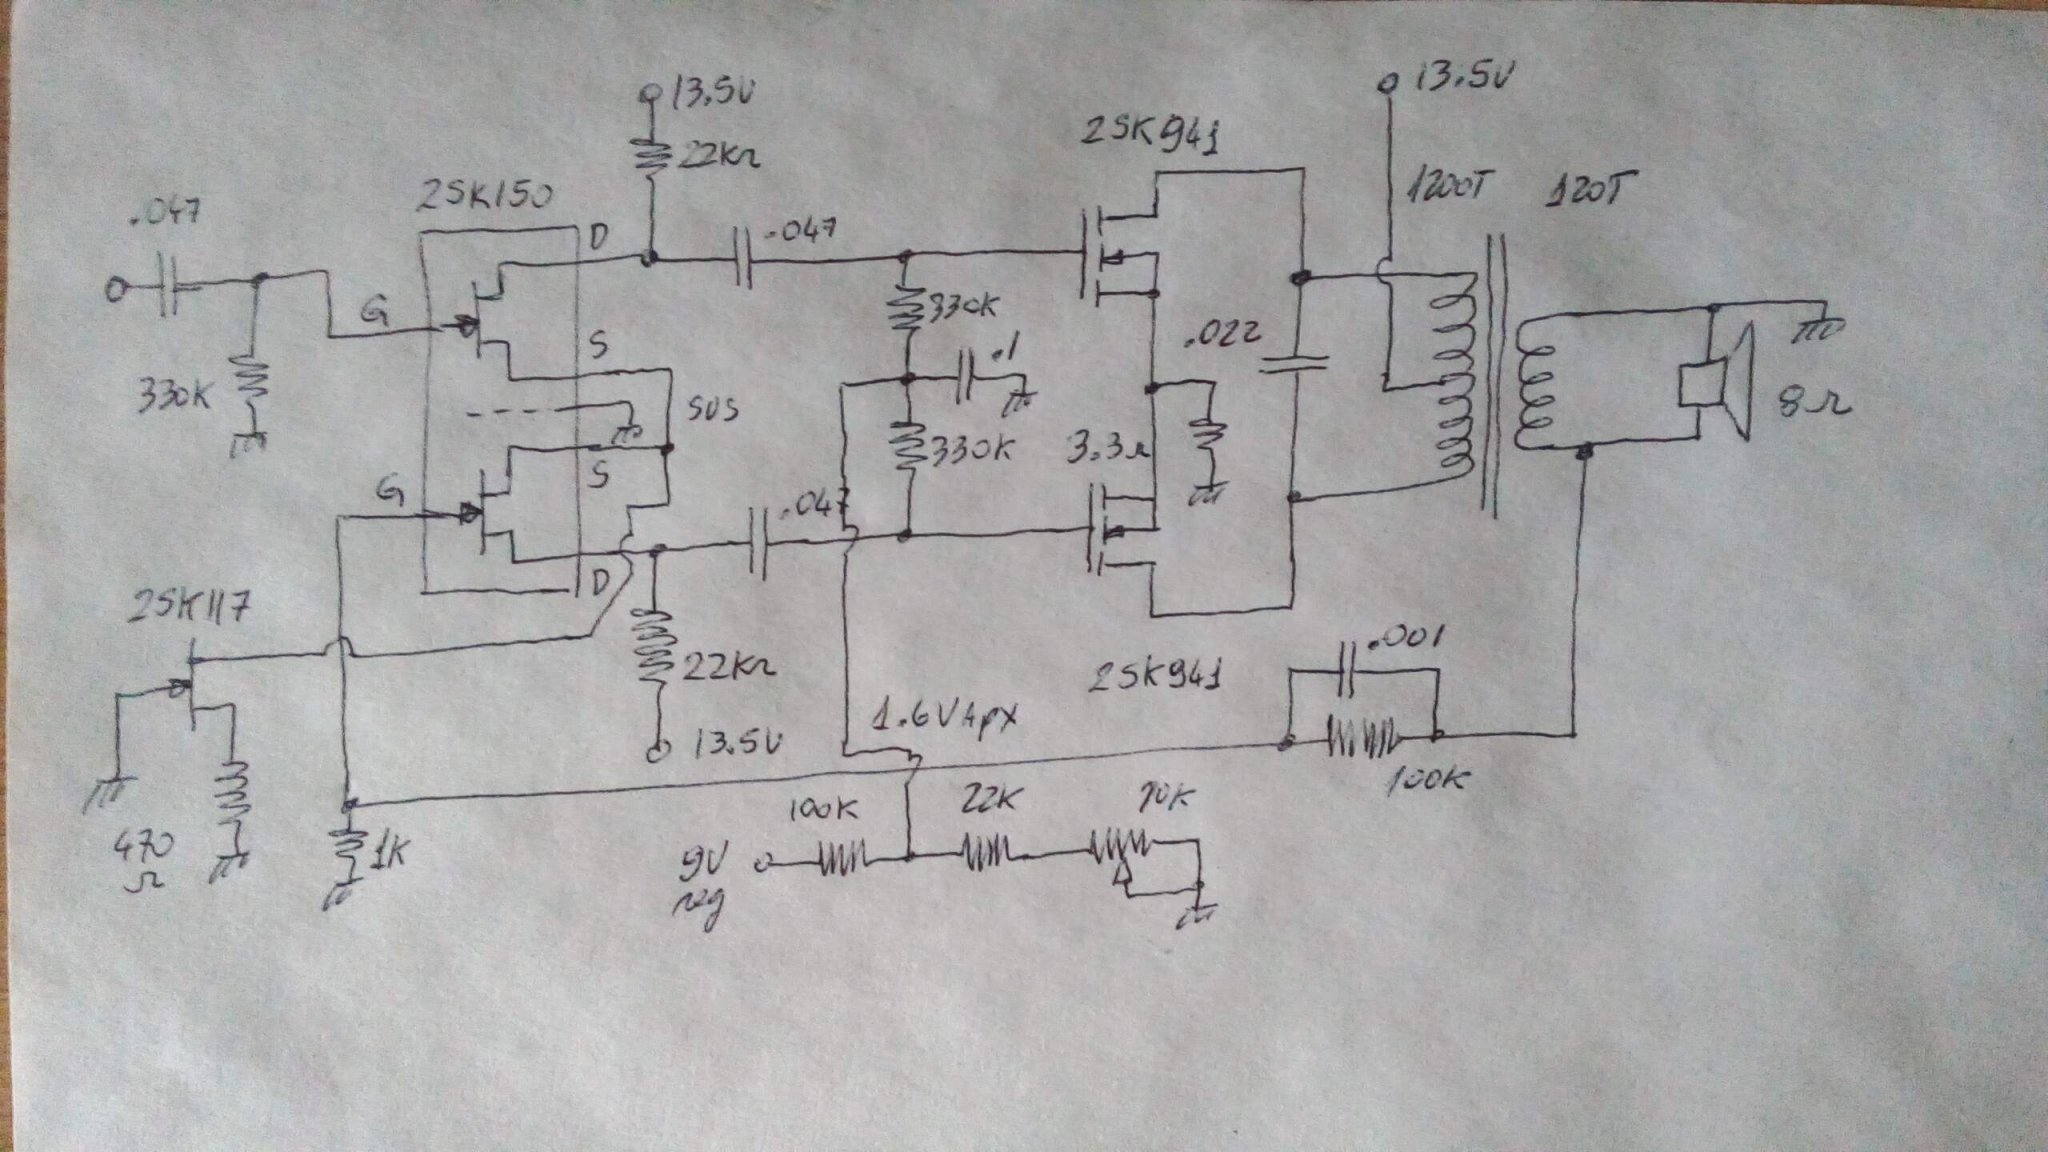 13.5V
13.5V
2SK941
22KΩ
1200T
120T
2SK150
.047
D
.047
G
330K
.1
.022
S
330K
SUS
8Ω
330K
3.3Ω
S
G
.047
D
2SK117
.001
22KΩ
2SK941
1.6V Apx
13.5V
100K
100K
22K
470
Ω
1K
9V
reg